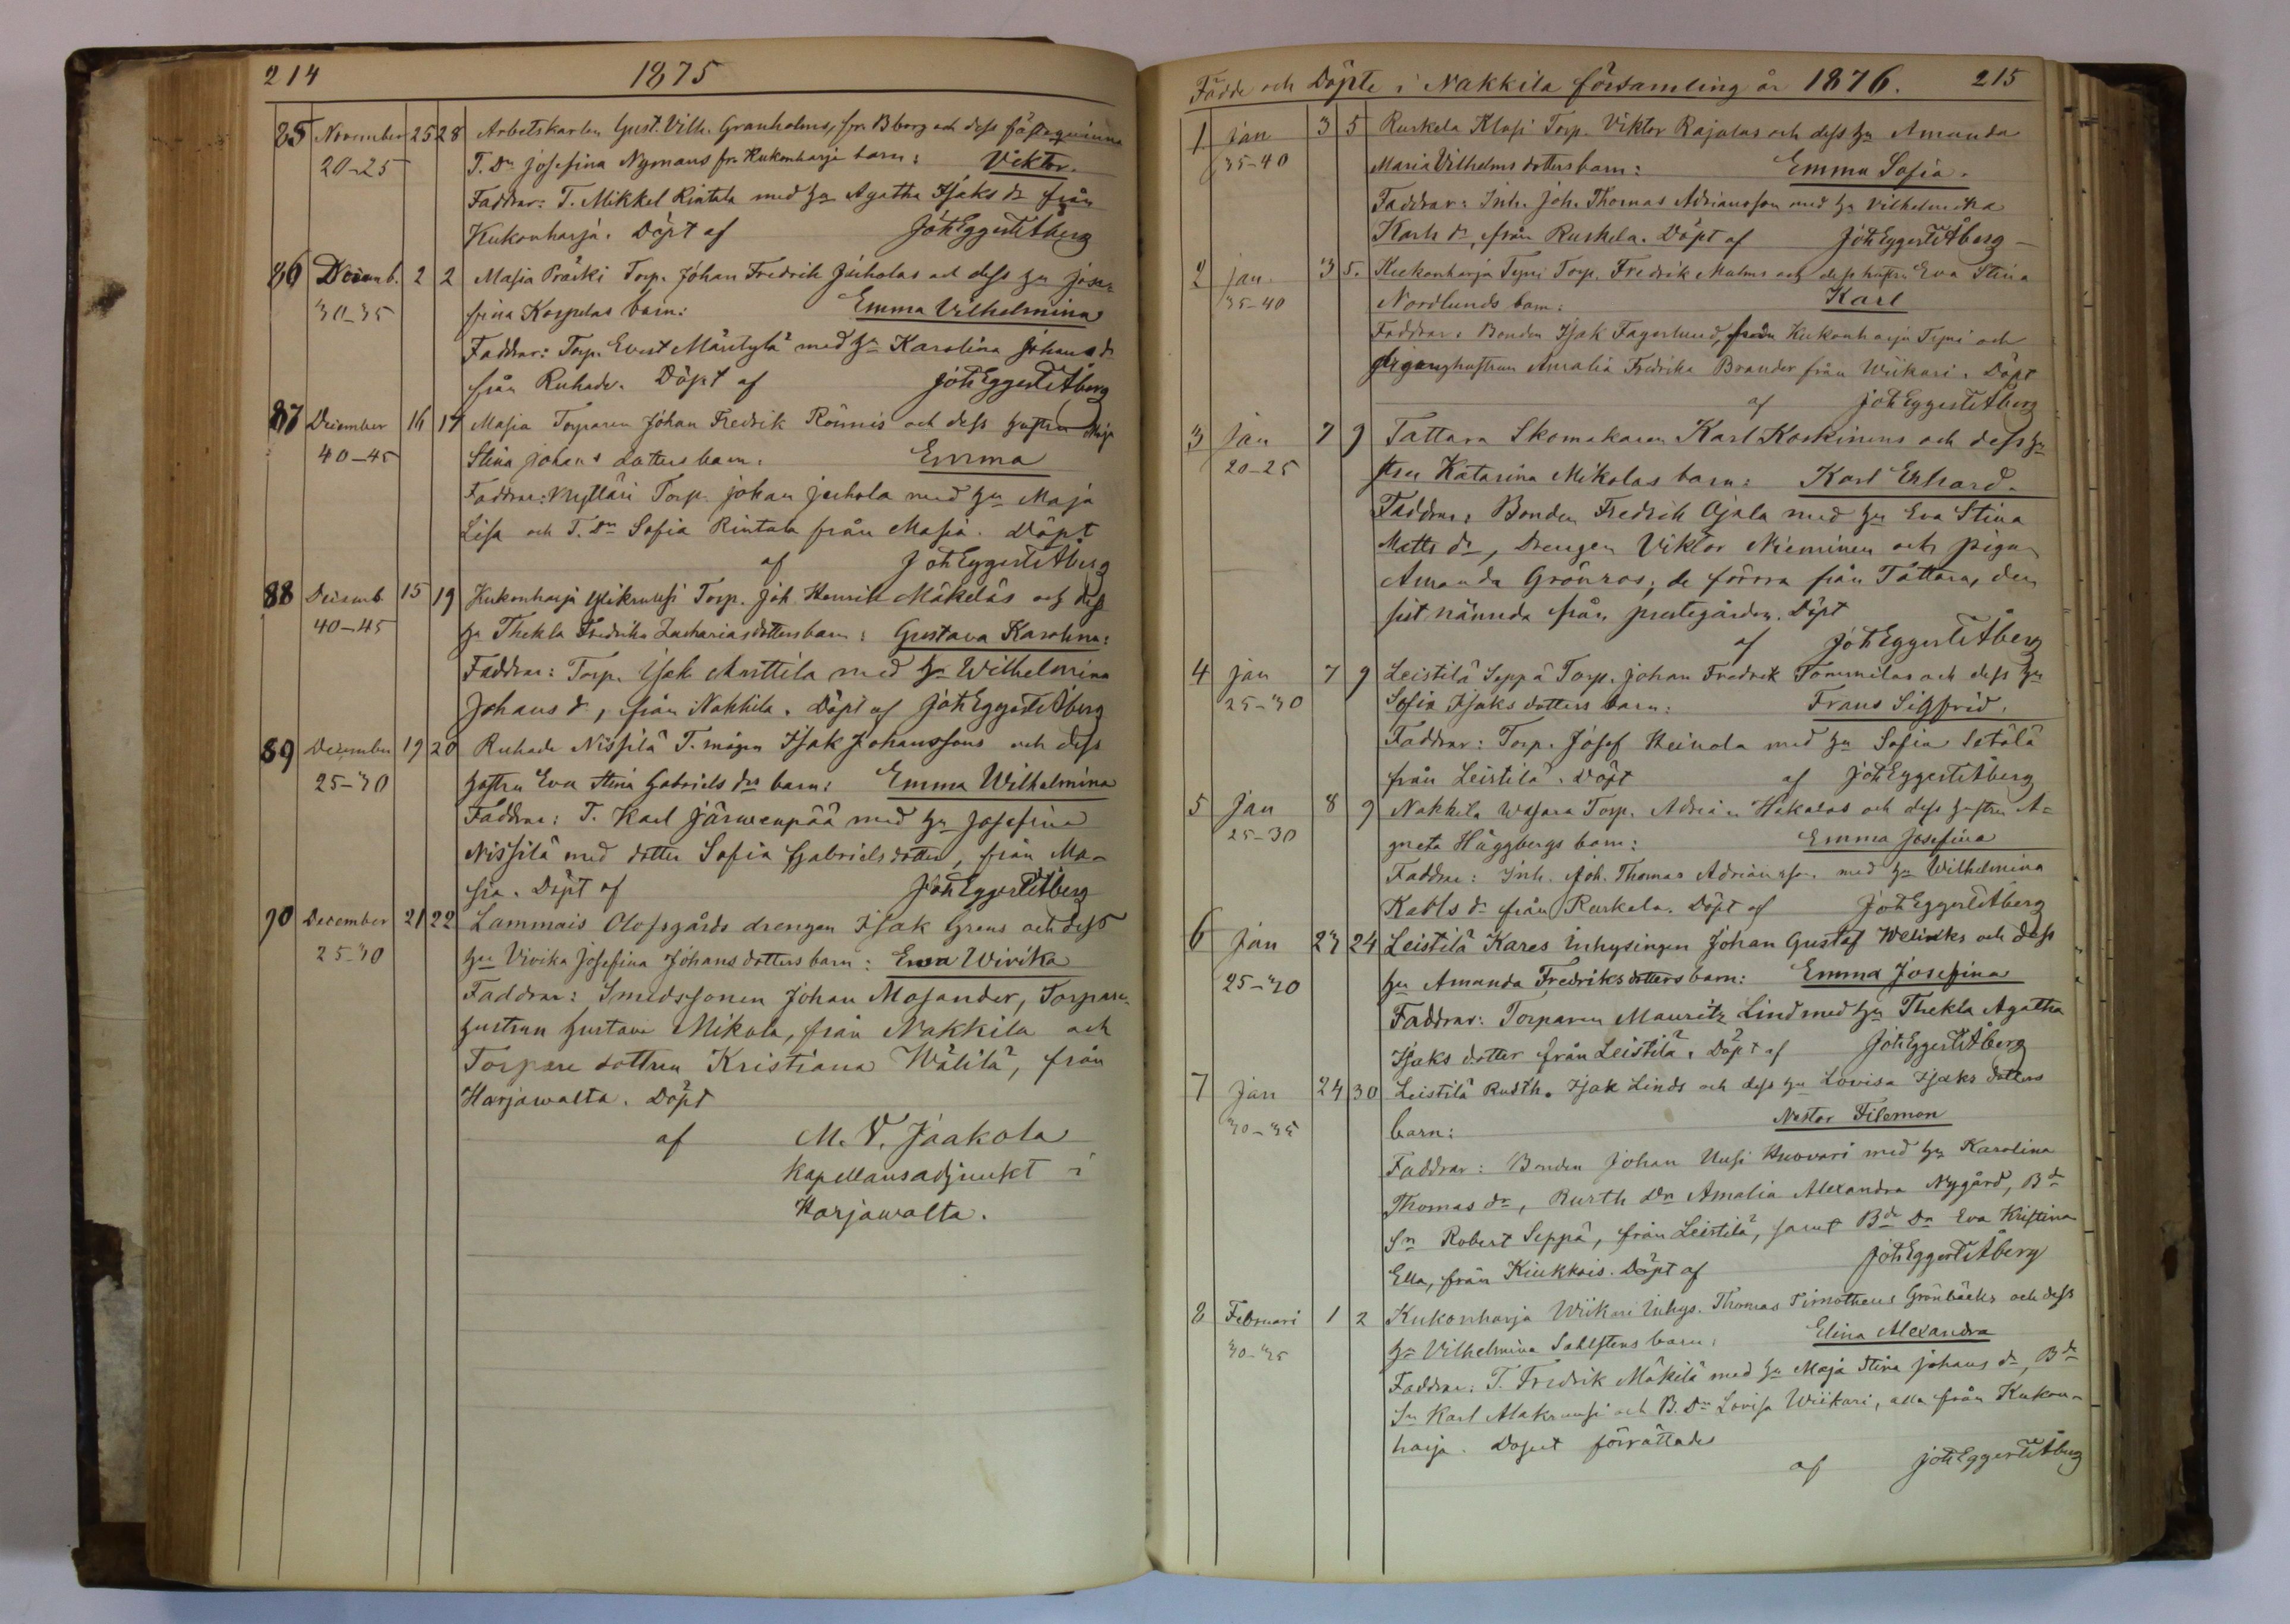 214
1875
85 November 25 28 Arbetskarlen Gust. Vilh. Granholms, fr. Bborg och dess fästeqvinna
20-25 T. Dn Josefina Nymans fr. Kukonharja barn: Viktor.
Faddrar: T. Mikkel Rintala med hu Agatha Isaks dr från
Kukonharja. Döpt af Joh Eggert Åberg
86 Decemb. 2 2 Masia Präiki Torp. Johan Fredrik Juholas och dess hu Jose=
30-35 fina Korpelas barn: Emma Vilhelmina
Faddrar: Torp. Evert Mäntylä med hu Karolina Johans dr
från Ruhade. Döpt af Joh Eggert Åberg
87 December 16 17 Masia Torparen Johan Fredrik Rönnis och dess hustru Maja
40-45 Stina Johans dotters barn. Emma
Faddrar: Mylläri Torp. Johan Juhola med hu Maja
Lisa och T. Dn Sofia Rintala från Masia. Döpt
af Joh Eggert Åberg
88 Decemb 15 19 Kukonharja Torp. Joh. Henrik Mäkeläs och dess
40-45 hu Thekla Fredrika Zachariasdotters barn: Gustava Karolina:
Faddrar: Torp. Isak Anttila med hu Wilhelmina
Johans dr, från Nakkila. Döpt af Joh Eggert Åberg
89 December 19 20 Ruhade Nissilä T. mågen Isak Johanssons och dess
25-30 hustru Eva Stina Gabriels drs barn: Emma Wilhelmina
Faddrar: T. Karl Järwenpää med hu Josefina
Nissilä med dotter Sofia Gabrielsdotter, från Ma-
sia. Döpt af Joh Eggert Åberg
90 December 21 22 Lammais Olofsgårds drengen Isak Grens och dess
25-30 hu Vivika Josefina Johansdotters barn: Emma Wivika
Faddrar: Smedssonen Johan Mosander, Torpare-
hustrun Gustava Mikola, från Nakkila och
Torpare dottren Kristiana Wälilä, från
Harjawalta. Döpt
af M. V. Jaakola
Kapellansadjunkt i
Harjawalta.
Födde och Döpte i Nakkila församling år 1876. 215
1. Jan 3 5 Ruskela Klasi Torp. Viktor Rajalas och dess hu Amanda
35-40 Maria Vilhelms dotters barn: Emma Sofia.
Faddrar: Inh. Joh. Thomas Adriansson med hu Vilhelmina
Karls dr, från Ruskela. Döpt af Joh Eggert Åberg
2 Jan. 3 5. Kukonharja Tyni Torp. Fredrik Malms och dess hustru Eva Stina
35-40 Nordlunds barn: Karl
Faddrar: Bonden Isak Fagerlund, från Kukonharja Tyni och
hustrun Amalia Fredrika Brander från Wiikari. Döpt
af Joh Eggert Åberg
3 Jan 7 9 Tattara Skomakaren Karl Koskinens och dess hu-
20-25 stru Katarina Mikolas barn: Karl Erhard.
Faddrar: Bonden Fredrik Ojala med hu Eva Stina
Matts dr, Drengen Viktor Nieminen och pigan
Amanda Grönroos; de förra från Tattara, den
sist nämnda från prestegården. Döpt
af Joh Eggert Åberg
4 Jan 7 9 Leistilä Seppä Torp. Johan Fredrik Tommilas och dess hu
25-30 Sofia Isaks dotters barn: Frans Sigfrid.
Faddrar: Torp. Josef Heinola med hu Sofia Setälä
från Leistilä. Döpt af Joh Eggert Åberg
5 Jan 8 9 Nakkila Wasara Torp. Adrian Hakalas och dess hustru A=
25-30 gneta Häggbergs barn: Emma Josefina
Faddrar: Inh. Joh. Thomas Adriansson med hu Wilhelmina
Karls dr från Ruskela. Döpt af Joh Eggert Åberg
6 Jan 23 24 Leistilä Kares Inhysingen Johan Gustaf Welinks och dess
25-30 hu Amanda Fredriksdotters barn: Emma Josefina
Faddrar: Torparen Mauritz Lind med hu Thekla Agatha
Isaks dotter från Leistilä. Döpt af Joh Eggert Åberg
7 Jan 24 30 Leistilä Rusth. Isak Linds och dess hu Lovisa Isaks dotters
30-35 barn: Nestor Filemon
Faddrar: Bonden Johan Uusi Knovari med hu Karolina
Thomas dr, Rusth Dn Amalia Alexandra Nygård, Bde
Sn Robert Seppä, från Leistilä, samt Bde Dn Eva Kristina
Ella, från Kiukkais. Döpt af Joh Eggert Åberg
8 Februari 1 2 Kukonharja Wiikari Inhys. Thomas Timotheus Grönbäcks och dess
30-35 hu Vilhelmina Sahlstens barn: Elina Alexandra
Faddrar: T. Fredrik Mäkilä med hu Maja Stina Johans dr, Bde
Sn Karl Alakruusi och B. Dn Lovisa Wiikari, alla från Kukon-
harja. Dopet förrättades
af Joh Eggert Åberg